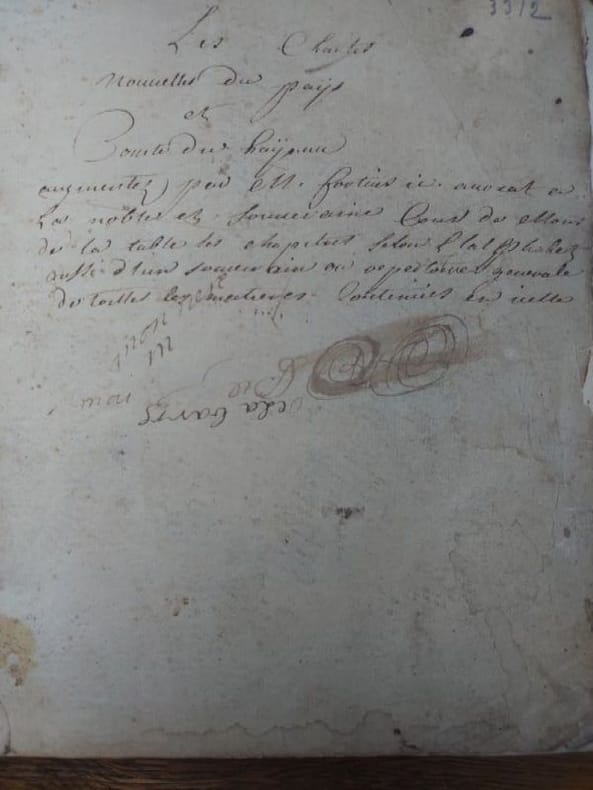 3312
Les Chartes
nouvelles du pays
et
Comté du haÿnau
augmentez par M. fortius ic. avocat a
La noble et souveraine Cour de Mons
de la table des chapitres selon l'alphabet
aussi d'un sommair ou repertoire generale
de touttes les matieres Contenües en icelle
dela barre